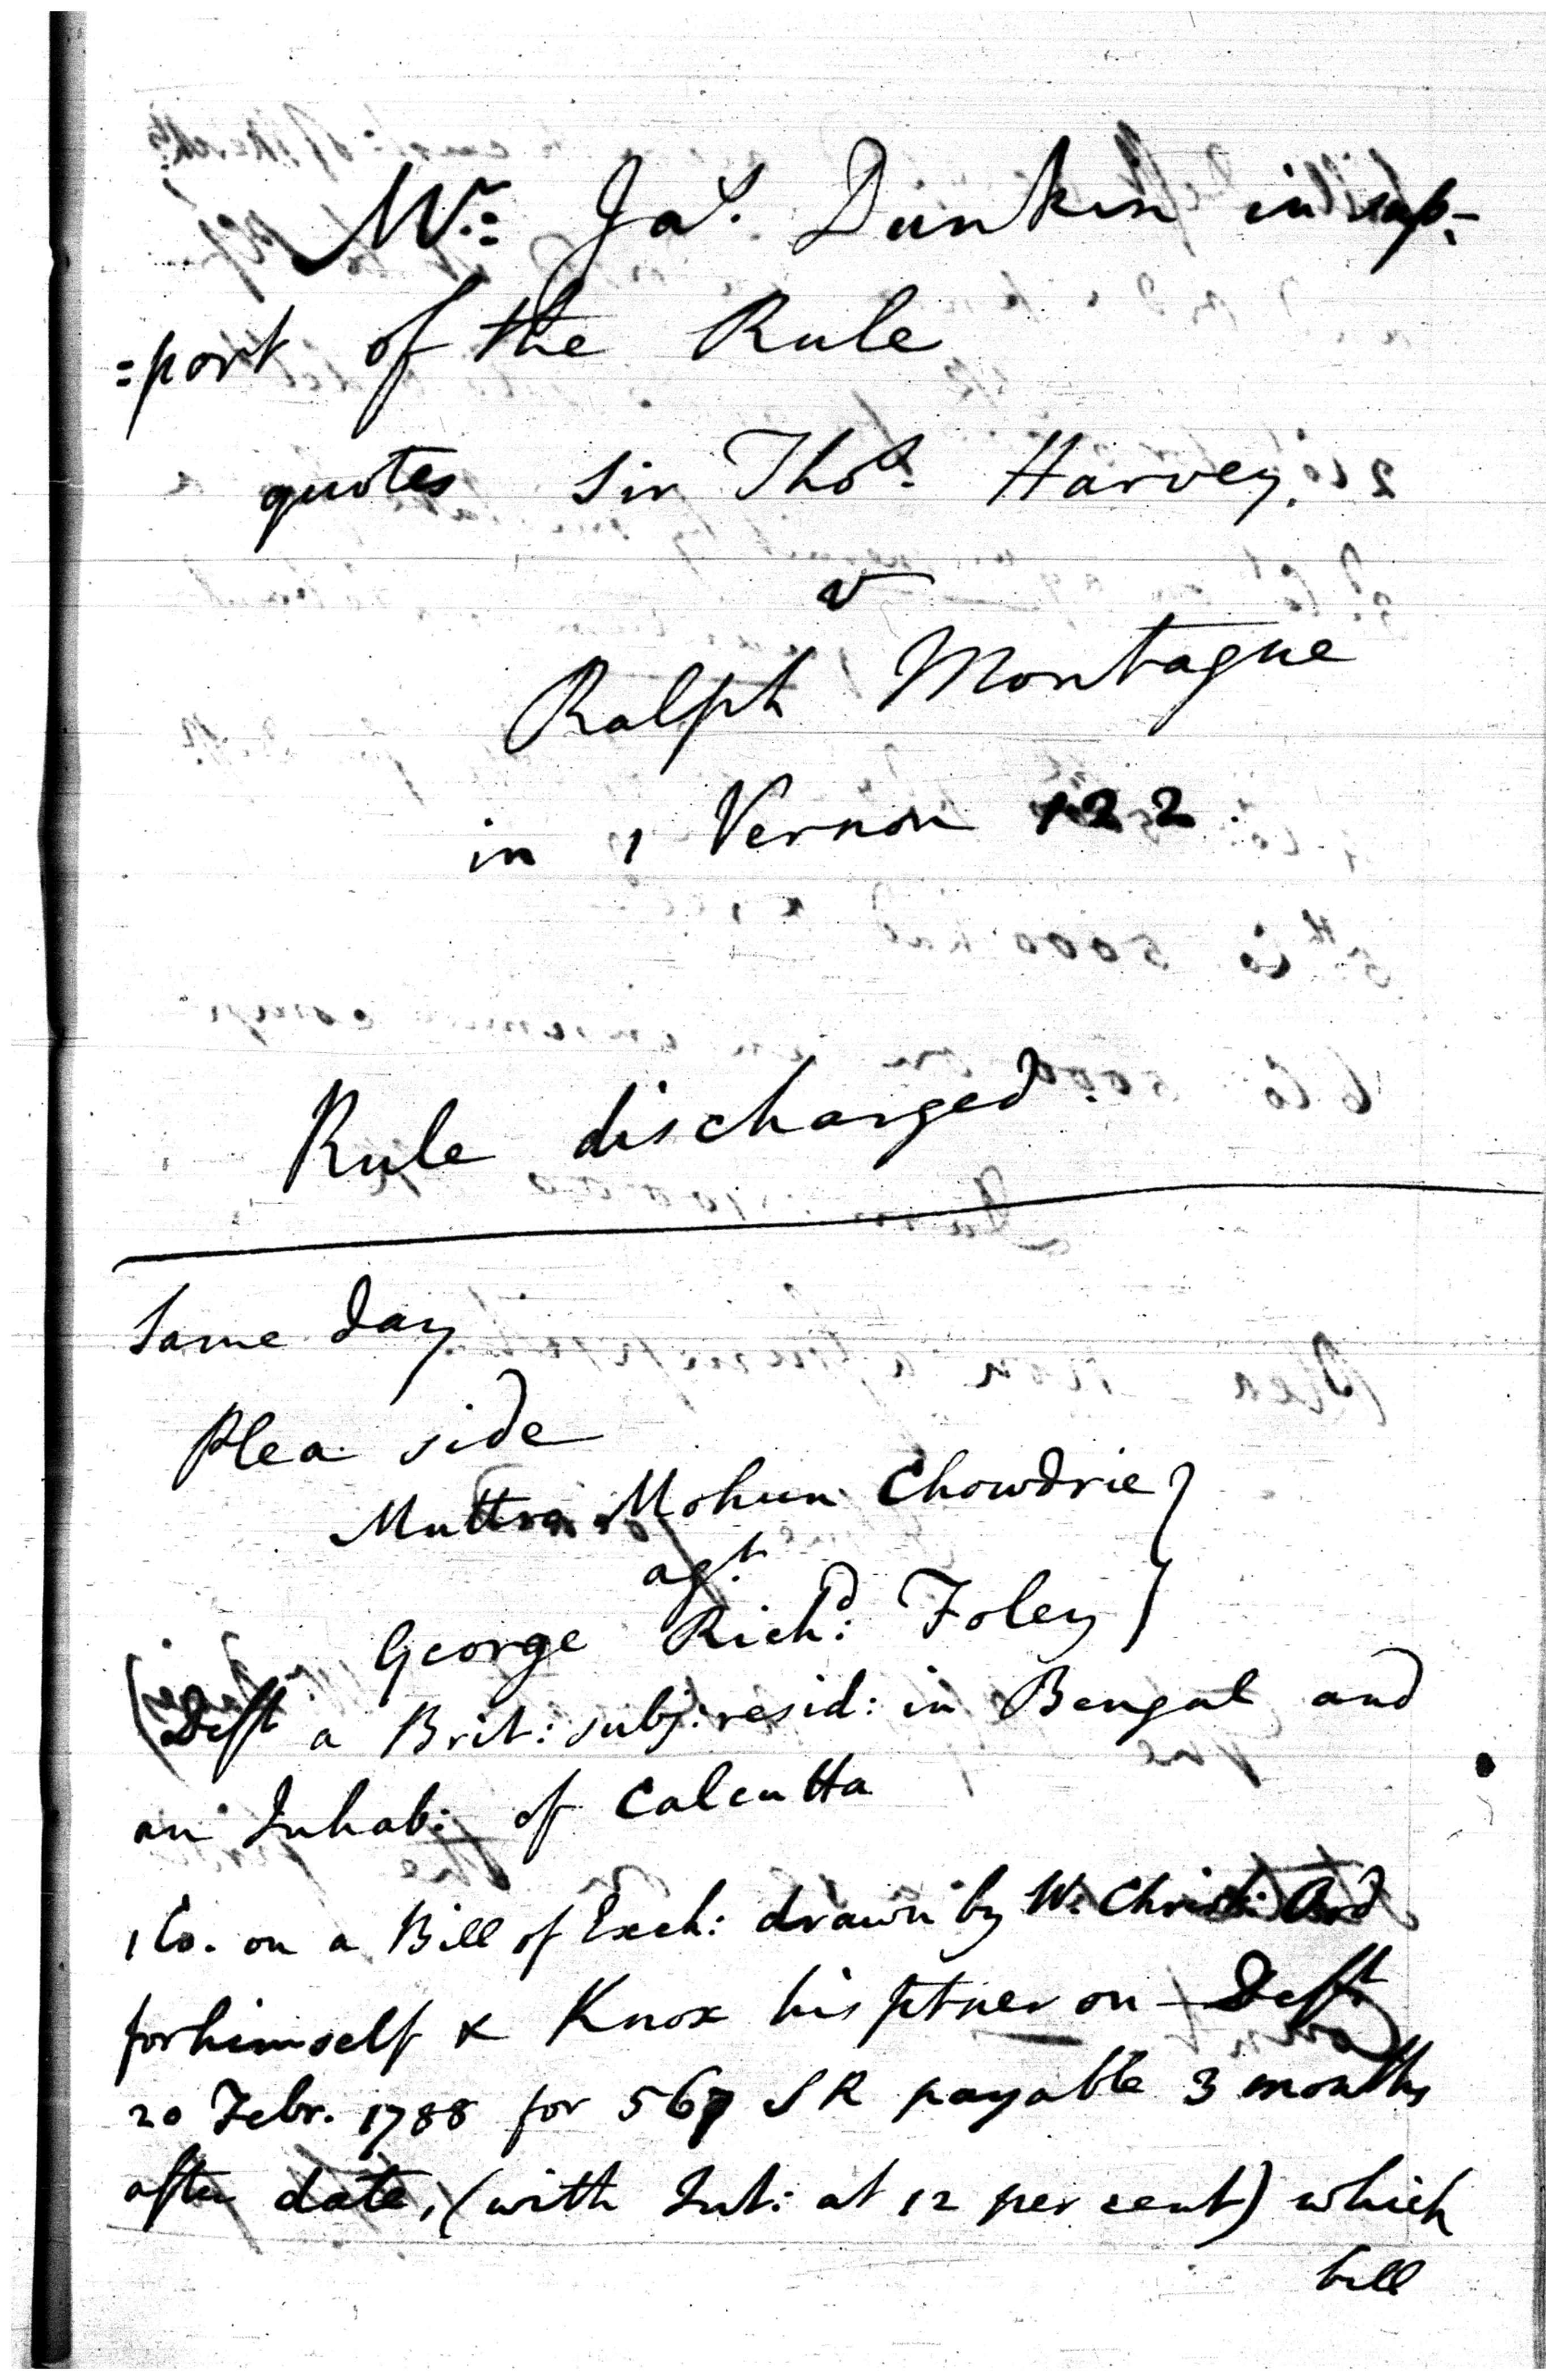 Mr: Jas. Dunkin in sup-
=port of the Rule
quotes Sir Thos. Harvey.
v
Ralph Montague
in 1 Vernon 122
Rule discharged.
Same day
Plea side
Muttra Mohun Chowdrie }
agt.
George Richd: Foley }
(Deft a Brit: subj: resid: in Bengal and
an Inhab: of Calcutta
1 Co. on a Bill of Exch: drawn by W. Christ: Ord
for himself & Knox his ptner on Deft
20 Febr. 1788 for 567 SR payable 3 months
after date, (with Int: at 12 per cent) which
bill